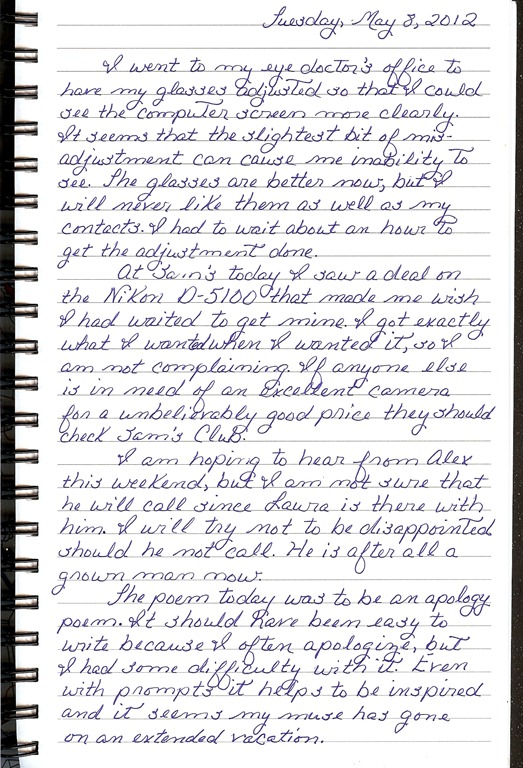 Tuesday, May 8, 2012
I went to my eye doctor's office to
have my glasses adjusted so that I could
see the computer screen more clearly.
It seems that the slightest bit of mis-
adjustment can cause me inability to
see. The glasses are better now, but I
will never like them as well as my
contacts. I had to wait about an hour to
get the adjustment done.
At Sam's today I saw a deal on
the Nikon D-5100 that made me wish
I had waited to get mine. I got exactly
what I wanted when I wanted it, so I
am not complaining. If anyone else
is in need of an excellent camera
for a unbelievably good price they should
check Sam's Club.
I am hoping to hear from Alex
this weekend, but I am not sure that
he will call since Laura is there with
him. I will try not to be disappointed
should he not call. He is after all a
grown man now.
The poem today was to be an apology
poem. It should have been easy to
write because I often apologize, but
I had some difficulty with it. Even
with prompts it helps to be inspired
and it seems my muse has gone
on an extended vacation.